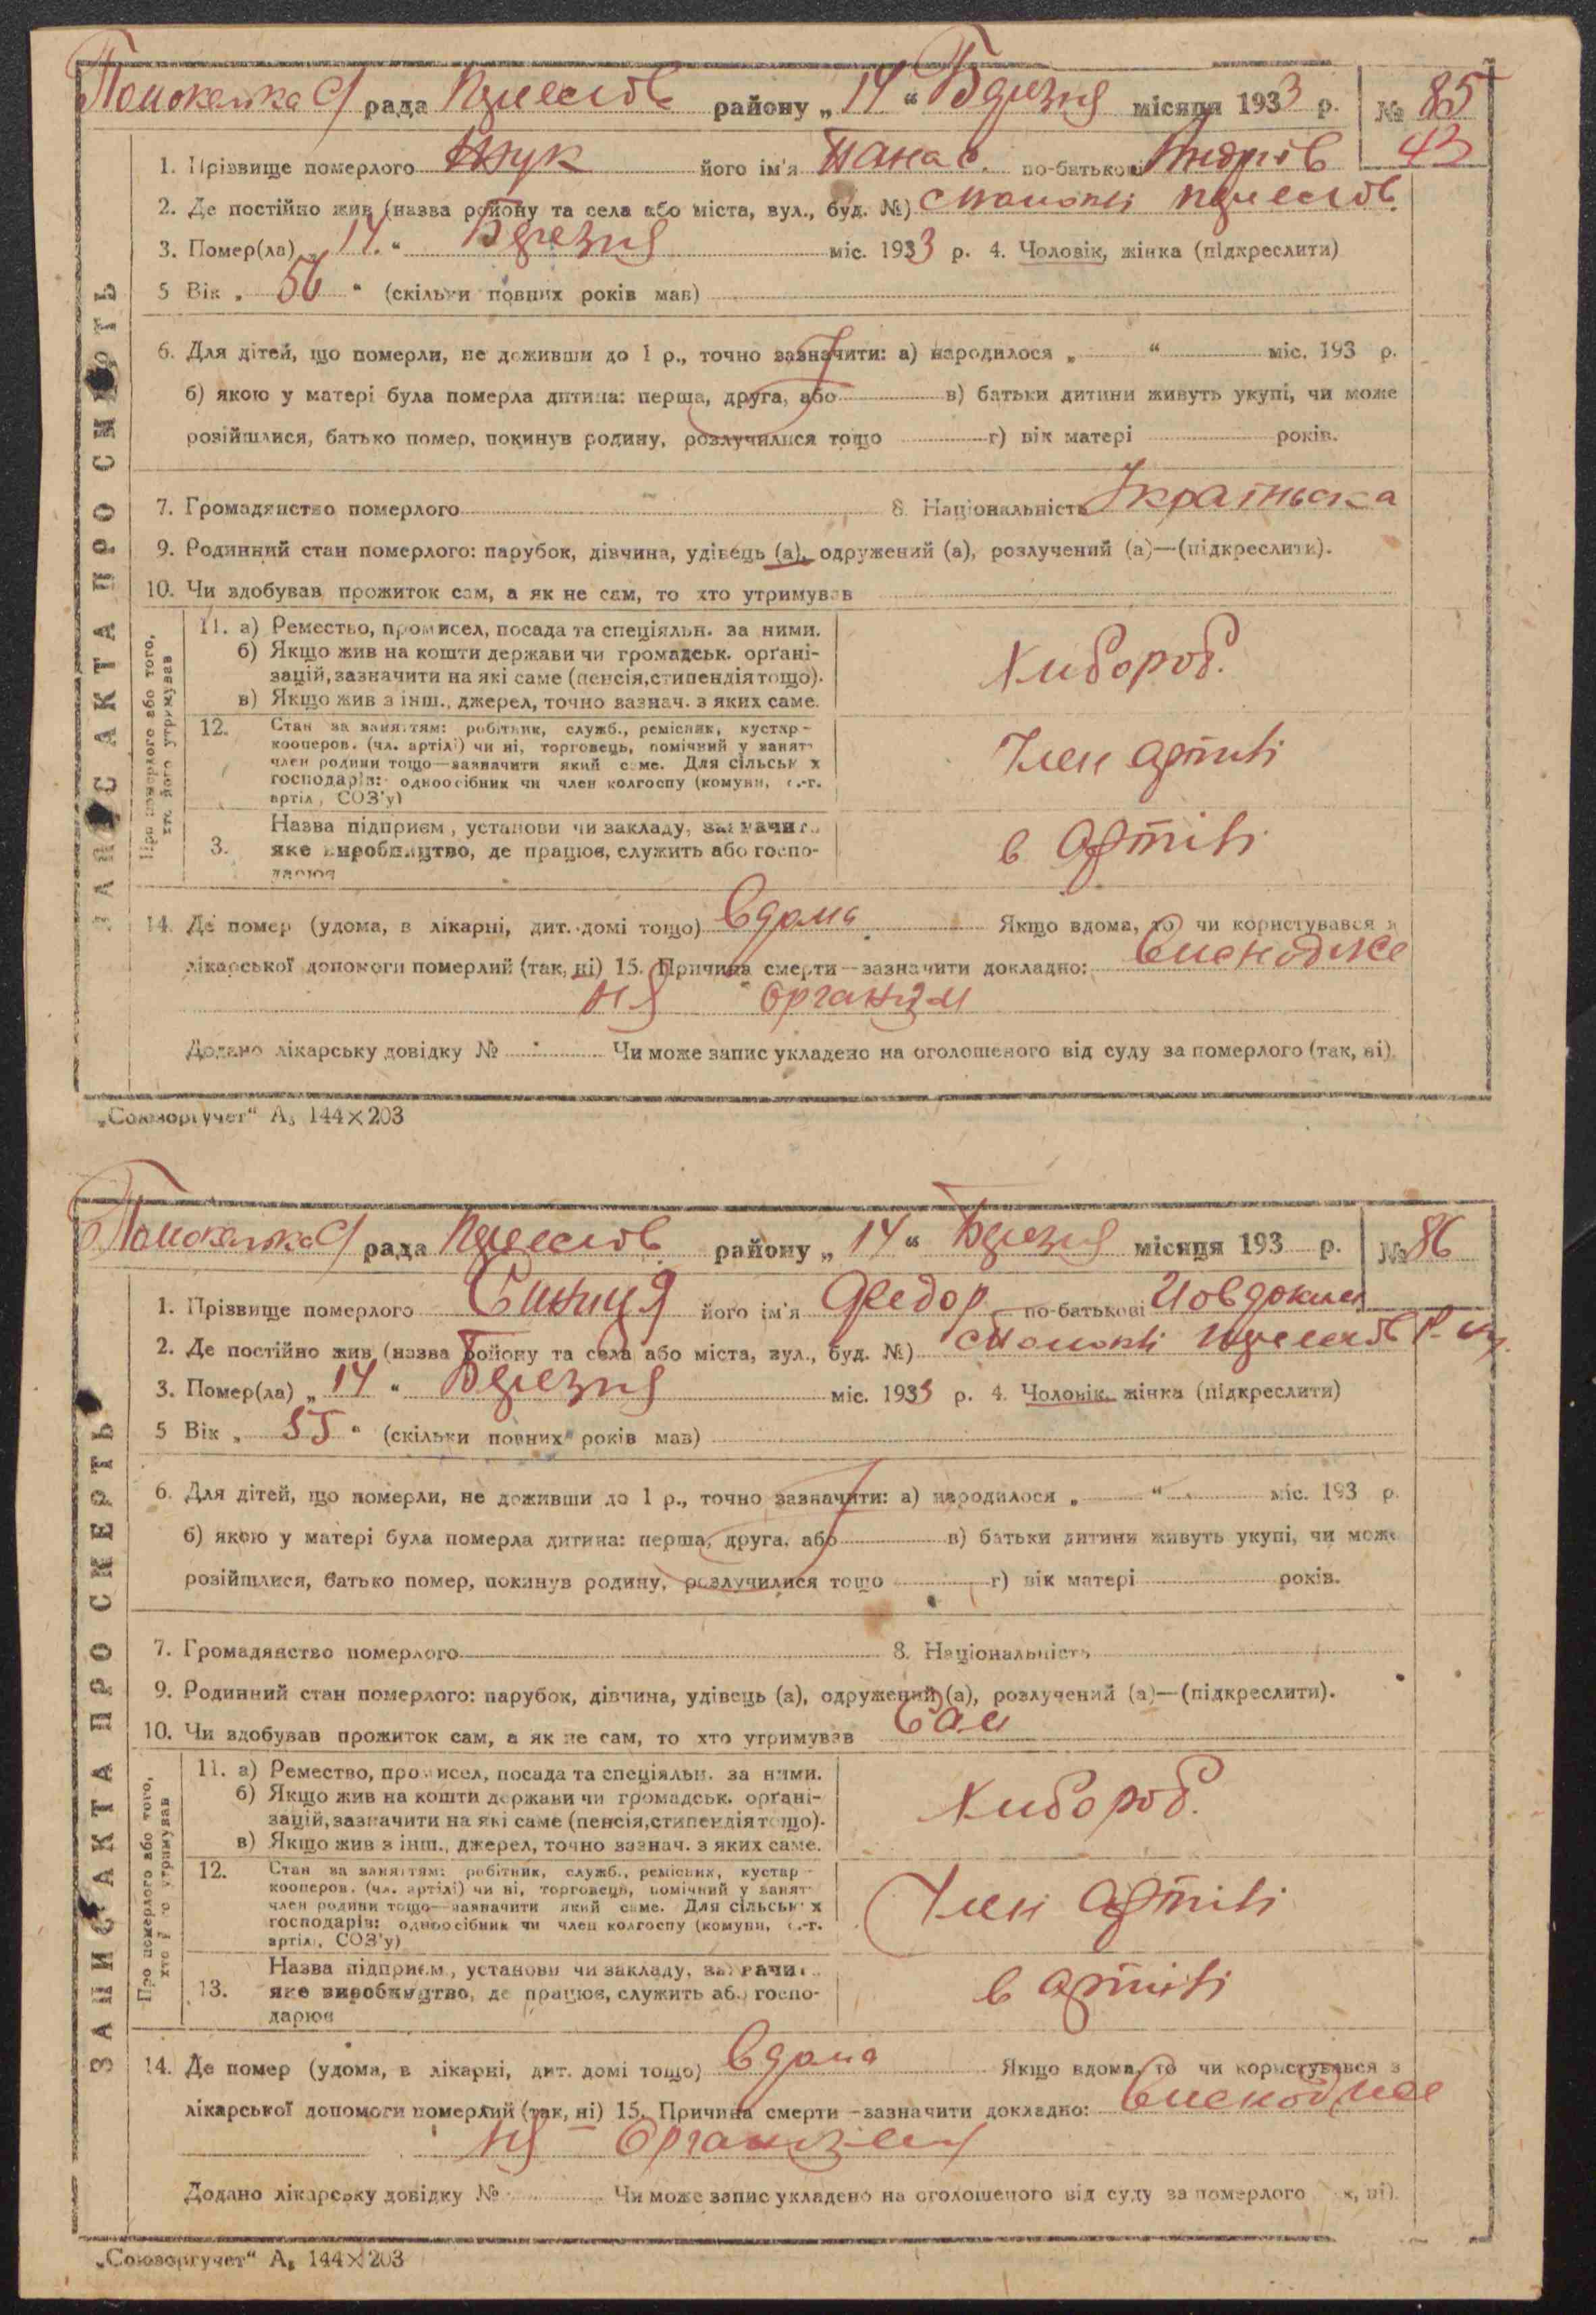 рада район у „ 14 “ Березня місяця 1933 р. № 85
43
1. Прізвище померлого Жук його ім'я Панас по-батькові Андрів
2. Де постійно жив (назва району та села або міста, вул., буд. №)
3. Помер(ла) „ 14 “ Березня міс. 1933 р. 4. Чоловік, жінка (підкреслити)
5 Вік „ 56 “ (скільки повних років мав)
6. Для дітей, що померли, не доживши до 1 р., точно зазначити: а) народилося „ “ міс. 193 р.
б) якою у матері була померла дитина: перша, друга, або в) батьки дитини живуть укупі, чи може
розійшлися, батько помер, покинув родину, розлучилися тощо г) вік матері років.
7. Громадянство померлого 8. Національність Україньска
9. Родинний стан померлого: парубок, дівчина, удівець (а), одружений (а), розлучений (а)—(підкреслити).
10. Чи здобував прожиток сам, а як не сам, то хто утримував
ЗАПИС АКТА ПРО СМЕРТЬ
Про померлого або того,
хто його утримував
11. а) Ремество, промисел, посада та спеціяльн. за ними.
б) Якщо жив на кошти держави чи громадськ. орґані-
зацій, зазначити на які саме (пенсія, стипендія тощо).
в) Якщо жив з інш., джерел, точно зазнач. з яких саме.
Хибороб.
12. Стан за заняттям: робітник, служб., ремісник, кустар-
кооперов. (чл. артілі) чи ні, торговець, помічний у занят-
член родини тощо—зазначити який саме. Для сільськ х
господарів: одноосібник чи член колгоспу (комуни, с.-г.
артіл, СОЗ'у)
Член артілі
3. Назва підприєм, установи чи закладу, зазначит
яке виробництво, де працює, служить або госпо-
дарює
в артілі
14. Де помер (удома, в лікарні, дит. домі тощо) вдома Якщо вдома, то чи користувався з
лікарської допомоги померлий (так, ні) 15. Причина смерти—зазначити докладно: виснодже
ня організм
Додано лікарську довідку № Чи може запис укладено на оголошеного від суду за померлого (так, ні).
„Союзоргучет“ А₅ 144×203
рада району „ 14 “ Березня місяця 193 р. № 86
1. Прізвище померлого Синиця його ім'я Федор по-батькові Йовдоким
2. Де постійно жив (назва району та села або міста, вул., буд. №)
3. Помер(ла) „ 14 “ Березня міс. 1933 р. 4. Чоловік, жінка (підкреслити)
5 Вік „ 55 “ (скільки повних років мав)
6. Для дітей, що померли, не доживши до 1 р., точно зазначити: а) народилося „ “ міс. 193 р.
б) якою у матері була померла дитина: перша, друга, або в) батьки дитини живуть укупі, чи може
розійшлися, батько помер, покинув родину, розлучилися тощо г) вік матері років.
7. Громадянство померлого 8. Національність
9. Родинний стан померлого: парубок, дівчина, удівець (а), одружений (а), розлучений (а)—(підкреслити).
10. Чи здобував прожиток сам, а як не сам, то хто утримував Сам
ЗАПИС АКТА ПРО СМЕРТЬ
Про померлого або того,
хто його утримував
11. а) Ремество, промисел, посада та спеціяльн. за ними.
б) Якщо жив на кошти держави чи громадськ. орґані-
зацій, зазначити на які саме (пенсія, стипендія тощо).
в) Якщо жив з інш., джерел, точно зазнач. з яких саме.
Хибороб.
12. Стан за заняттям: робітник, служб., ремісник, кустар-
кооперов. (чл. артілі) чи ні, торговець, помічний у занят-
член родини тощо—зазначити який саме. Для сільськ х
господарів: одноосібник чи член колгоспу (комуни, с.-г.
артіл, СОЗ'у)
Член артілі
13. Назва підприєм., установи чи закладу, зазначит
яке виробництво, де працює, служить або госпо-
дарює
в артілі
14. Де помер (удома, в лікарні, дит. домі тощо) вдома Якщо вдома, то чи користувався з
лікарської допомоги померлий (так, ні) 15. Причина смерти—зазначити докладно: виснодже
ня організму
Додано лікарську довідку № Чи може запис укладено на оголошеного від суду за померлого к, ні).
„Союзоргучет“ А₅ 144×203